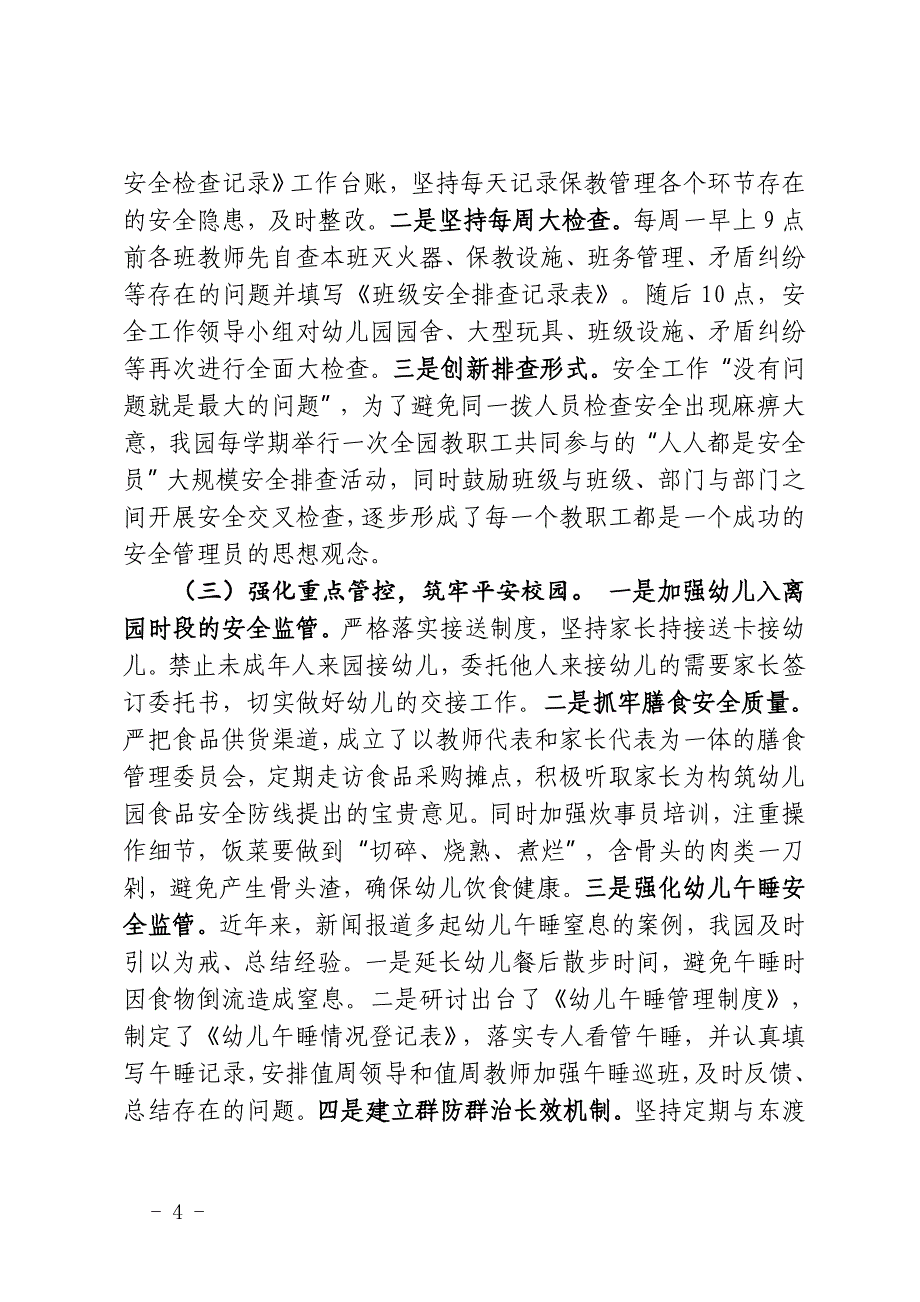 安全检查记录》工作台账，坚持每天记录保教管理各个环节存在
的安全隐患，及时整改。二是坚持每周大检查。每周一早上 9 点
前各班教师先自查本班灭火器、保教设施、班务管理、矛盾纠纷
等存在的问题并填写《班级安全排查记录表》。随后 10 点，安
全工作领导小组对幼儿园园舍、大型玩具、班级设施、矛盾纠纷
等再次进行全面大检查。三是创新排查形式。安全工作“没有问
题就是最大的问题”，为了避免同一拨人员检查安全出现麻痹大
意，我园每学期举行一次全园教职工共同参与的“人人都是安全
员”大规模安全排查活动，同时鼓励班级与班级、部门与部门之
间开展安全交叉检查，逐步形成了每一个教职工都是一个成功的
安全管理员的思想观念。
（三）强化重点管控，筑牢平安校园。 一是加强幼儿入离
园时段的安全监管。严格落实接送制度，坚持家长持接送卡接幼
儿。禁止未成年人来园接幼儿，委托他人来接幼儿的需要家长签
订委托书，切实做好幼儿的交接工作。二是抓牢膳食安全质量。
严把食品供货渠道，成立了以教师代表和家长代表为一体的膳食
管理委员会，定期走访食品采购摊点，积极听取家长为构筑幼儿
园食品安全防线提出的宝贵意见。同时加强炊事员培训，注重操
作细节，饭菜要做到“切碎、烧熟、煮烂”，含骨头的肉类一刀
剁，避免产生骨头渣，确保幼儿饮食健康。三是强化幼儿午睡安
全监管。近年来，新闻报道多起幼儿午睡窒息的案例，我园及时
引以为戒、总结经验。一是延长幼儿餐后散步时间，避免午睡时
因食物倒流造成窒息。二是研讨出台了《幼儿午睡管理制度》，
制定了《幼儿午睡情况登记表》，落实专人看管午睡，并认真填
写午睡记录，安排值周领导和值周教师加强午睡巡班，及时反馈、
总结存在的问题。四是建立群防群治长效机制。坚持定期与东渡
- 4 -